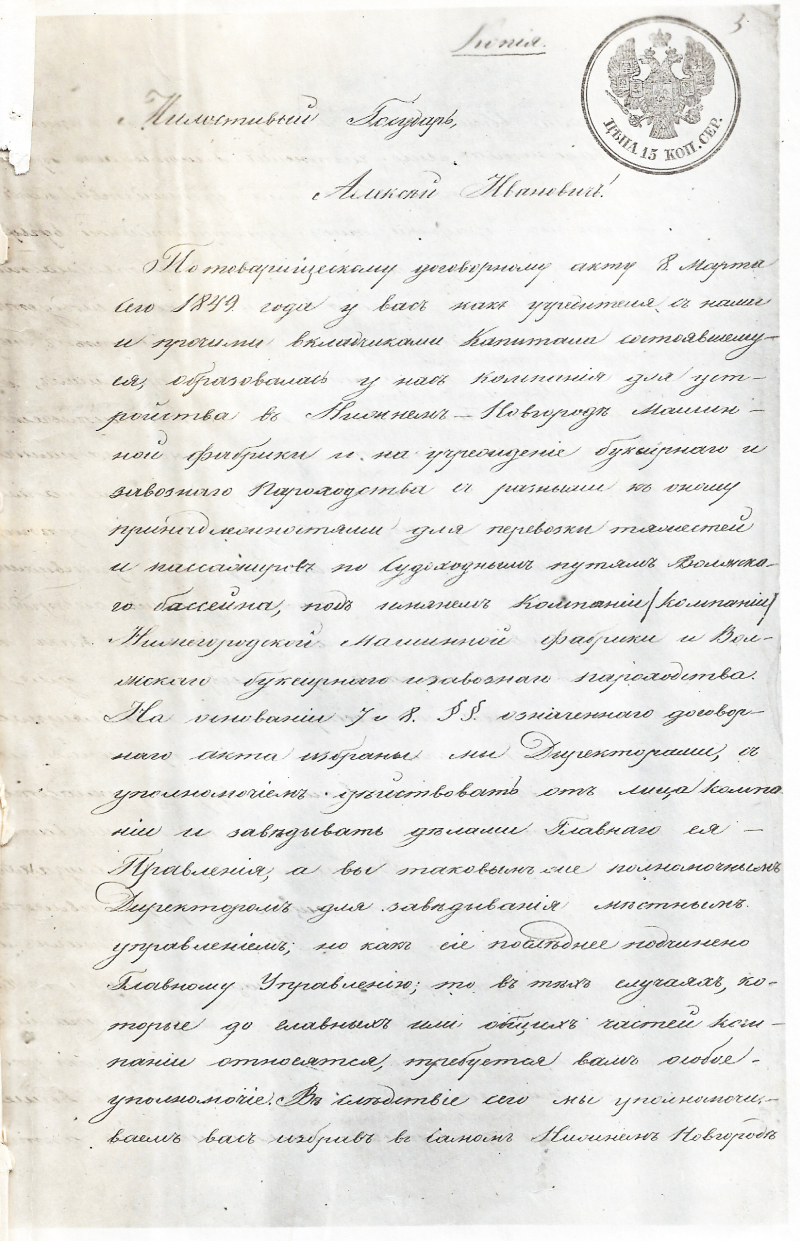 Копія.
5
ЦѢНА 15 КОП. СЕР.
Милостивый Государь,
Алексѣй Ивановичъ!
По товарищескому договорному акту 8 Марта
сего 1849 года у васъ какъ учредителя съ нами
и прочими вкладчиками Капитала состоявшему-
ся, образовалась у насъ компанія для уст-
ройства въ Нижнемъ-Новгородѣ Машин-
ной фабрики и на учрежденіе буксирнаго и
завознаго Пароходства съ разными къ оному
принадлежностями для перевозки тяжестей
и пассажировъ по Судоходнымъ путямъ Волжска-
го бассейна, подъ имянемъ Компаніи [компаніи]
Нижегородской Машинной фабрики и Вол-
жскаго буксирнаго и завознаго пароходства.
На основаніи 7 и 8. §§. означеннаго договор-
наго акта избраны мы Директорами, съ
уполномочіемъ дѣйствовать отъ лица Компа-
ніи и завѣдывать дѣлами Главнаго ея -
Правленія, а вы таковымъ же полномочнымъ
Директоромъ для завѣдыванія мѣстнымъ
управленіемъ; но какъ сіе послѣднее подчинено
Главному Управленію; то въ тѣхъ случаяхъ, ко-
торые до главныхъ или общихъ частей Ком-
паніи относятся, требуется вамъ особое -
уполномочіе. Въ слѣдствіе сего мы уполномочи-
ваемъ васъ избравъ въ Самомъ Нижнемъ Новгородѣ